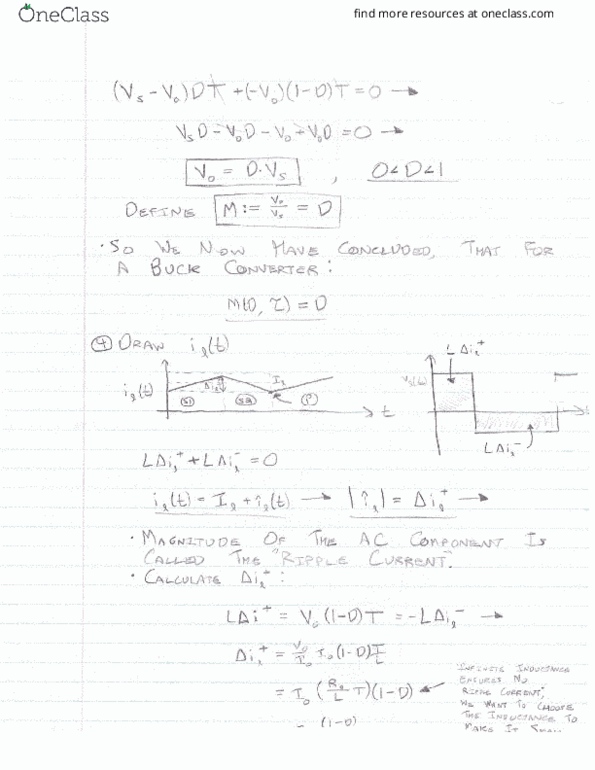 OneClass
find more resources at oneclass.com
(Vs - Vo)DT + (-Vo)(1-D)T = 0 →
VsD - VoD - Vo + VoD = 0 →
Vo = D·Vs , 0<D<1
DEFINE M := Vo/Vs = D
· SO WE NOW HAVE CONCLUDED, THAT FOR
A BUCK CONVERTER:
M(D, τ) = D
④ DRAW i_l(t)
L Δi_l^+
i_l(t)
t
L Δi_l^-
LΔi_l^+ + LΔi_l^- = 0
i_l(t) = I_l + î_l(t) → |î_l| = Δi_l^+ →
· MAGNITUDE OF THE AC COMPONENT IS
CALLED THE "RIPPLE CURRENT".
· CALCULATE Δi_l^+ :
LΔi^+ = Vo(1-D)T = -LΔi_l^- →
Δi_l^+ = Vo/Io Io(1-D)T/L
= Io (Ro/L T)(1-D)
(1-D)
INFINITE INDUCTANCE
ENSURES NO
RIPPLE CURRENT;
WE WANT TO CHOOSE
THE INDUCTANCE TO
MAKE IT SMALL